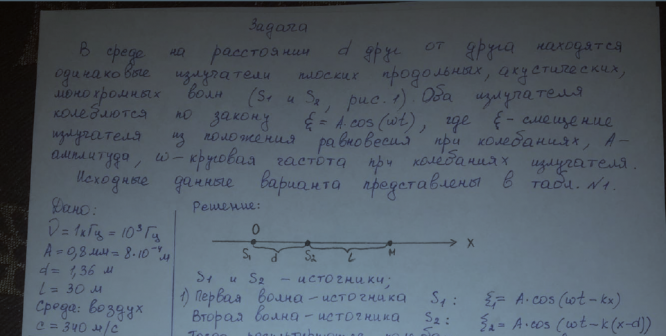 Задача
В среде на расстоянии d друг от друга находятся
одинаковые излучатели плоских продольных, акустических,
монохромных волн (S1 и S2, рис. 1). Оба излучателя
колеблются по закону ξ = A·cos(ωt), где ξ - смещение
излучателя из положения равновесия при колебаниях, A-
амплитуда, ω - круговая частота при колебаниях излучателя.
Исходные данные варианта представлены в табл. №1.
Дано:
ν = 1кГц = 10³ Гц
A = 0,8 мм = 8·10⁻⁴ м
d = 1,36 м
L = 30 м
Среда: воздух
c = 340 м/с
Решение:
O
S1 d S2 L M X
S1 и S2 - источники;
1) Первая волна - источника S1: ξ1 = A·cos(ωt-kx)
Вторая волна - источника S2: ξ2 = A·cos(ωt-k(x-d))